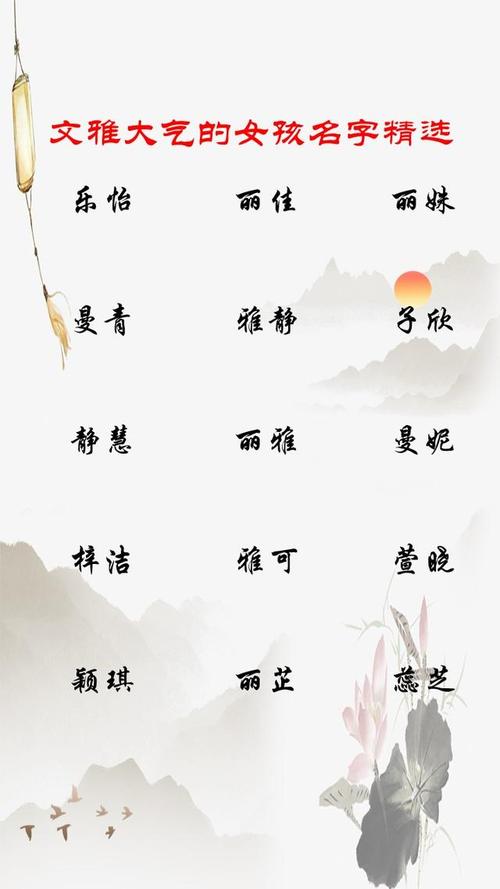 文雅大气的女孩名字精选
乐怡 丽佳 丽姝
曼青 雅静 子欣
静慧 丽雅 曼妮
梓洁 雅可 萱晓
颖琪 丽芷 蕊芝